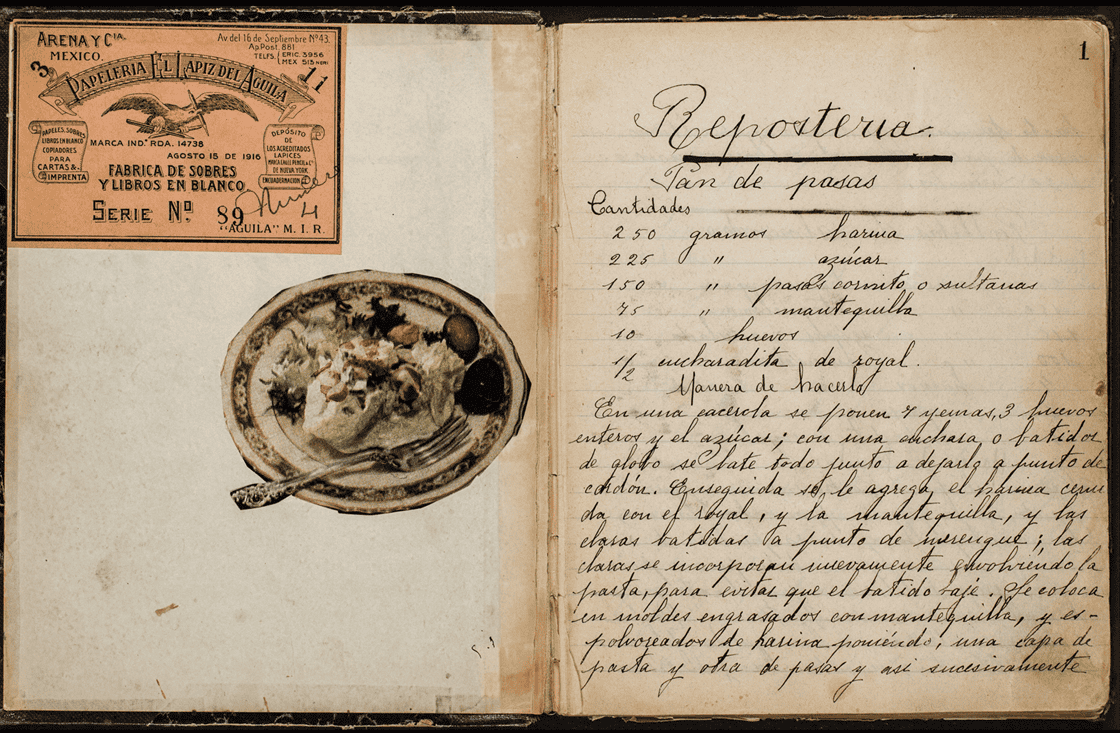 ARENA Y CIA.
MEXICO.
Av del 16 de Septiembre Nº 43.
Ap. Post. 881
TELFS. ERIC. 3956
MEX 515 NERI
3
11
PAPELERIA EL LAPIZ DEL AGUILA
PAPELES. SOBRES
LIBROS EN BLANCO
COPIADORES
PARA
CARTAS &.
IMPRENTA
MARCA IND. RDA. 14738
AGOSTO 15 DE 1916
DEPÓSITO
DE
LOS ACREDITADOS
LAPICES
DE NUEVA YORK
ENCUADERNACION
FABRICA DE SOBRES
Y LIBROS EN BLANCO
SERIE Nº. 89
Numero
4
"AGUILA" M. I. R.
1
Repostería.
Pan de pasas
Cantidades
250 gramos harina
225 " azúcar
150 " pasas corinto o sultanas
75 " mantequilla
10 huevos
1/2 cucharadita de royal.
Manera de hacerlo
En una cacerola se ponen 7 yemas, 3 huevos
enteros y el azúcar; con una cuchara o batidos
de globo se bate todo junto a dejarlo a punto de
cordón. Enseguida se le agrega el harina cerni
da con el royal, y la mantequilla, y las
claras batidas a punto de merengue; las
claras se incorporan nuevamente envolviendo la
pasta, para evitar que el batido baje. Se coloca
en moldes engrasados con mantequilla, y es-
polvoreados de harina poniéndo, una capa de
pasta y otra de pasas y asi sucesivamente